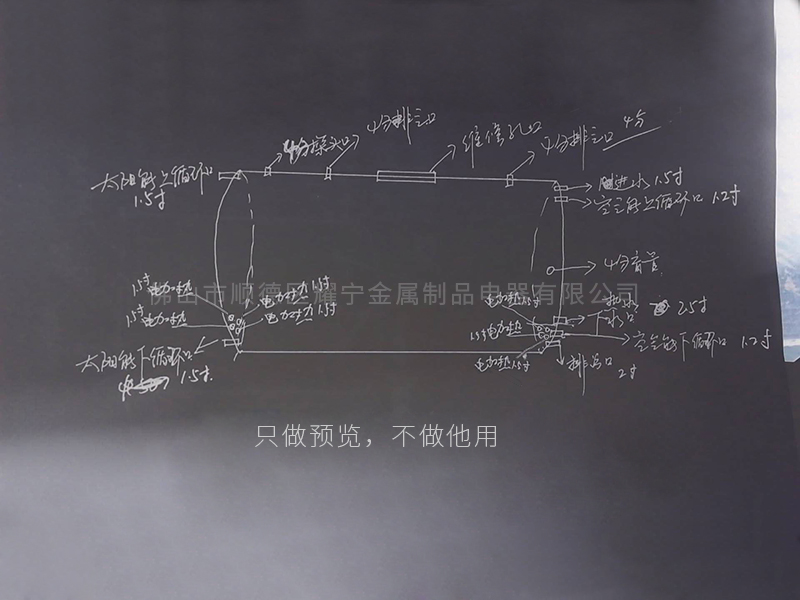 4分排空口
维修孔口
4分排空口 4分
4分探头口
太阳能上循环口
1.5寸
进水 1.5寸
空气能上循环口 1.2寸
佛山市顺德区耀宁金属制品电器有限公司
1.5寸
电加热
电加热 1.5寸
1.5寸
电加热
电加热 1.5寸
太阳能下循环口
1.5寸
电加热 1.5寸
1.5寸 电加热
电加热 1.5寸
2.5寸
空气能下循环口 1.2寸
排污口
2寸
只做预览，不做他用